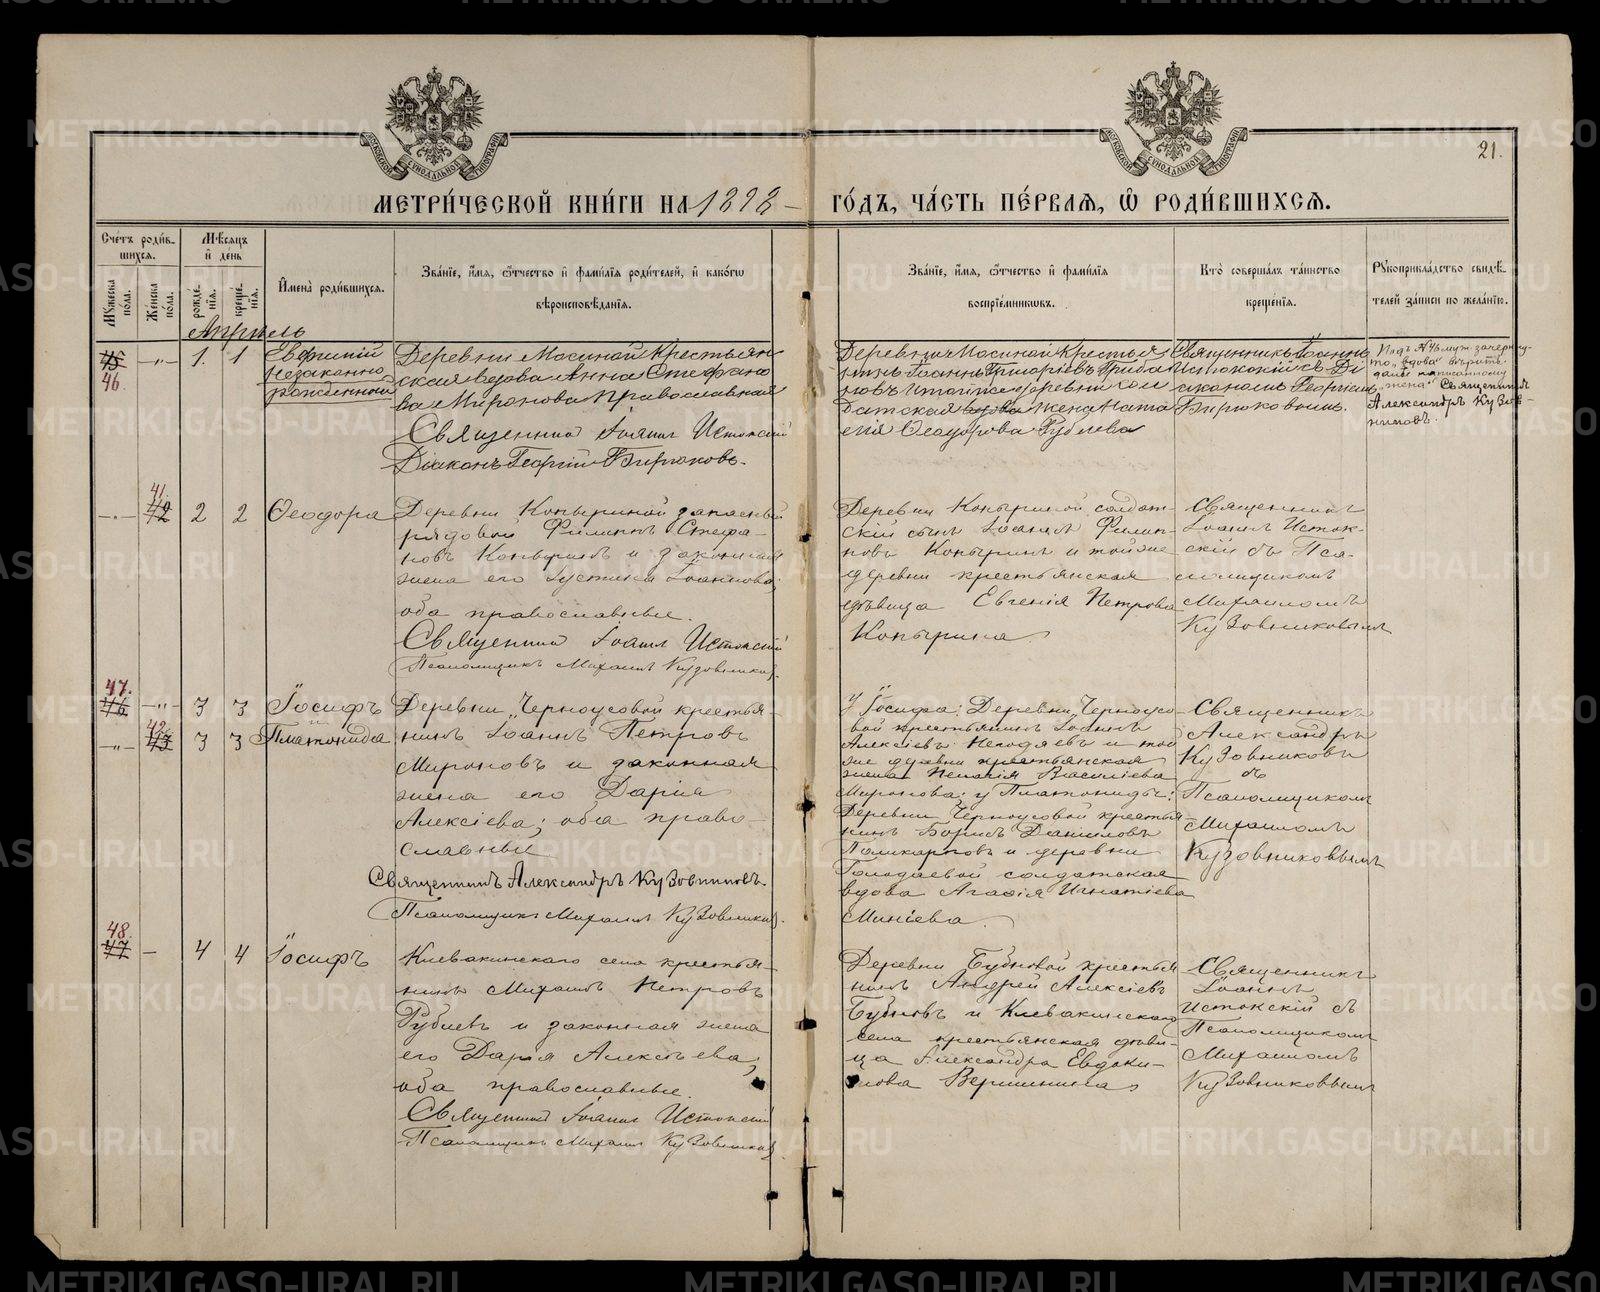 21.
МЕТРИ́ЧЕСКОЙ КНИ́ГИ НА 1898 ГО́ДЪ, ЧА́СТЬ ПЕ́РВАЯ, Ѽ РОДИ́ВШИХСЯ.
Сче́тъ роди́вшихся.
Мꙋ́жеска по́ла.
Же́нска по́ла.
Мѣ́сяцъ и҆ де́нь
рожде́нїѧ.
креще́нїѧ.
И҆мена̀ роди́вшихся.
Зва́нїе, и҆́мѧ, ѻ҆́тчество и҆ фами́лїѧ роди́телей, и҆ како́гѡ
вѣроисповѣ́данїѧ.
Зва́нїе, и҆́мѧ, ѻ҆́тчество и҆ фами́лїѧ
воспрїе́мникѡвъ.
Кто̀ соверша́лъ та́инство
креще́нїѧ.
Рꙋкоприкла́дство свидѣ́телей за́писи по жела́нїю.
Апрѣль
45
46.
1.
1
Евфимій
незаконно
рожденный
Деревни Мосиной Крестьян-
ская вдова Анна Стефано
ва Миронова православная
Священникъ Іоаннъ Истокскій
Діаконъ Георгій Бирюковъ.
Деревни Мосиной Крестья
нинъ Іоаннъ Григоріевъ
и той же деревни сол
датская вдова жена Ната
лія Ѳеодорова Рублева
Священникъ Іоаннъ
Истокскій съ Ді
акономъ Георгіемъ
Бирюковымъ.
Подъ №46 муж. зачеркну-
то „вдова" вѣрить
далѣе написанному
„жена" Священникъ
Александръ Кузов-
никовъ.
41.
42
2
2
Ѳеодора
Деревни Копыриной запасный
рядовой Филиппъ Стефа-
новъ Копыринъ и законная
жена его Іустина Іоаннова,
оба православные.
Священникъ Іоаннъ Истокскій
Псаломщикъ Михаилъ Кузовниковъ.
Деревни Копыриной солдат-
скій сынъ Іоаннъ Филип-
повъ Копыринъ и той же
деревни крестьянская
дѣвица Евгенія Петрова
Копырина
Священникъ
Іоаннъ Исток-
скій съ Пса-
ломщикомъ
Михаиломъ
Кузовниковымъ
47.
46
3
3
Іосифъ
42.
43
3
3
Платонида
Деревни Черноусовой крестья-
нинъ Іоаннъ Петровъ
Мироновъ и законная
жена его Дарія
Алексіева; оба право-
славные
Священникъ Александръ Кузовниковъ.
Псаломщикъ Михаилъ Кузовниковъ.
у Іосифа: Деревни Черноусо-
вой крестьянинъ Іоаннъ
Алексіевъ и той
же деревни крестьянская
жена Пелагія Василіева
Миронова; у Платониды:
Деревни Черноусовой крестья
нинъ Борисъ Даниловъ
Поликарповъ и деревни
солдатская
вдова Агафія Игнатіева
Минеева.
Священникъ
Александръ
Кузовниковъ
съ
Псаломщикомъ
Михаиломъ
Кузовниковымъ
48.
47
4
4
Іосифъ
Клевакинскаго села крестья-
нинъ Михаилъ Петровъ
Рублевъ и законная жена
его Дарія Алексѣева,
оба православные.
Священникъ Іоаннъ Истокскій
Псаломщикъ Михаилъ Кузовниковъ.
Деревни Бубновой крестья
нинъ Андрей Алексіевъ
Бубновъ и Клевакинскаго
села крестьянская дѣви-
ца Александра Евдоки-
мова Вершинина
Священникъ
Іоаннъ
Истокскій съ
Псаломщикомъ
Михаиломъ
Кузовниковымъ
METRIKI.GASO-URAL.RU